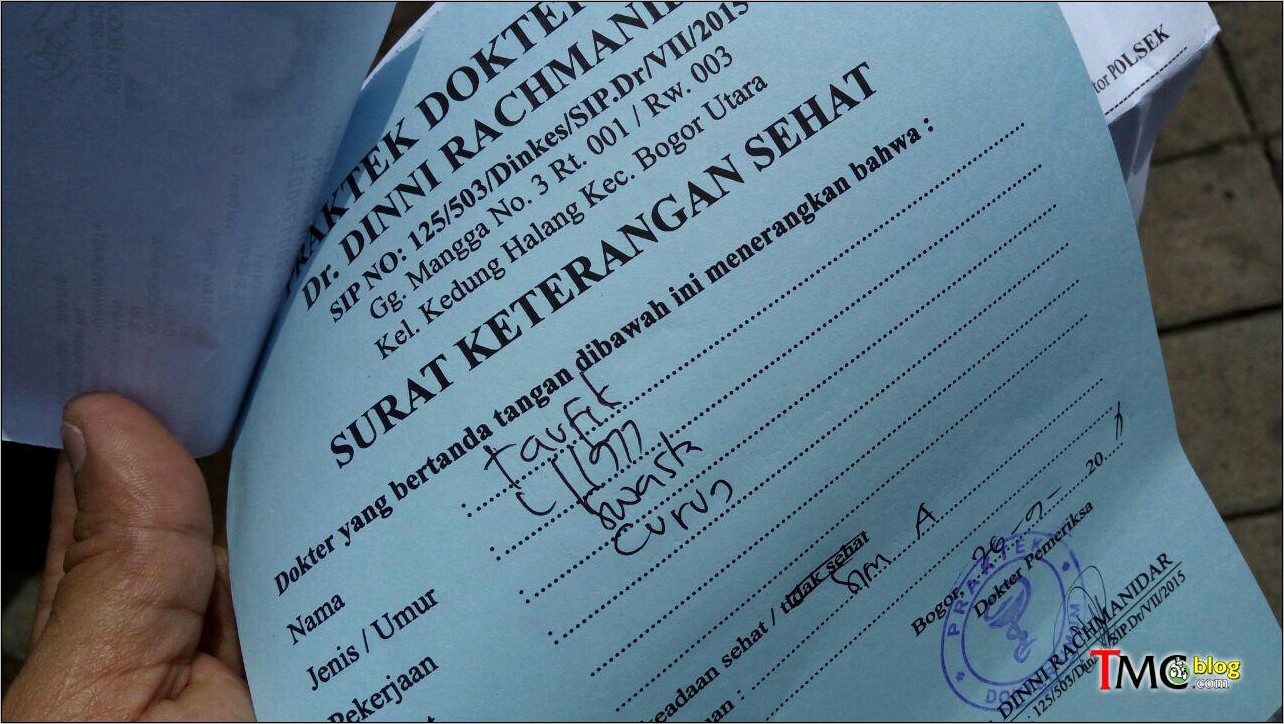 PRAKTEK DOKTER
Dr. DINNI RACHMANID
SIP NO: 125/503/Dinkes/SIP.Dr/VII/2015
Gg. Mangga No. 3 Rt. 001 / Rw. 003
Kel. Kedung Halang Kec. Bogor Utara
SURAT KETERANGAN SEHAT
Dokter yang bertanda tangan dibawah ini menerangkan bahwa :
Nama : taufik
Jenis / Umur : L / 1977
Pekerjaan : swasta
: curug
eadaan sehat / tidak sehat
an : sim A
Bogor, 26-9- 20
Dokter Pemeriksa
PRAKTEK
DINNI RACHMANIDAR
: 125/503/Din SIP.Dr/VII/2015
tor POLSEK
TMCblog
.com